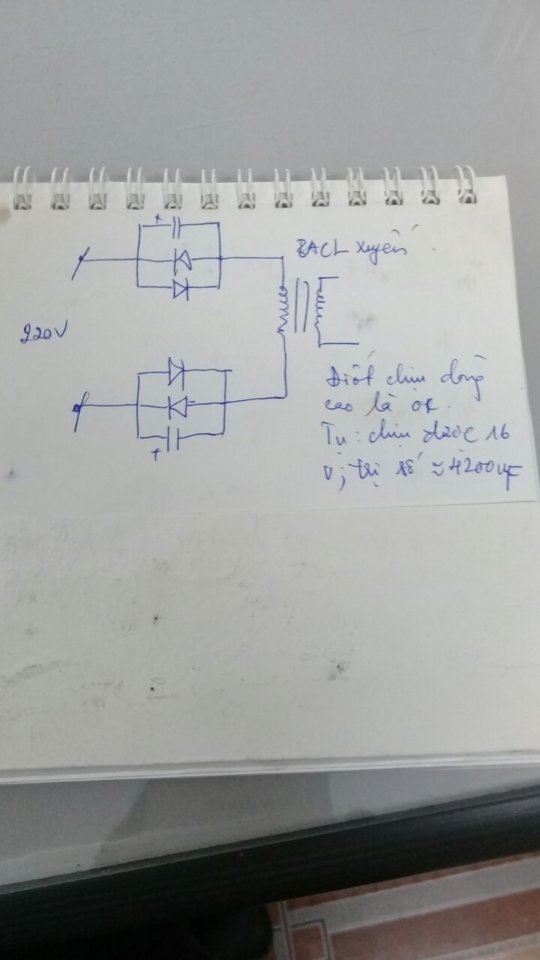 BACL xuyến
220V
Điốt chịu dòng
cao là ok.
Tụ: chịu được 16
V; trị số ≈ 4200uF